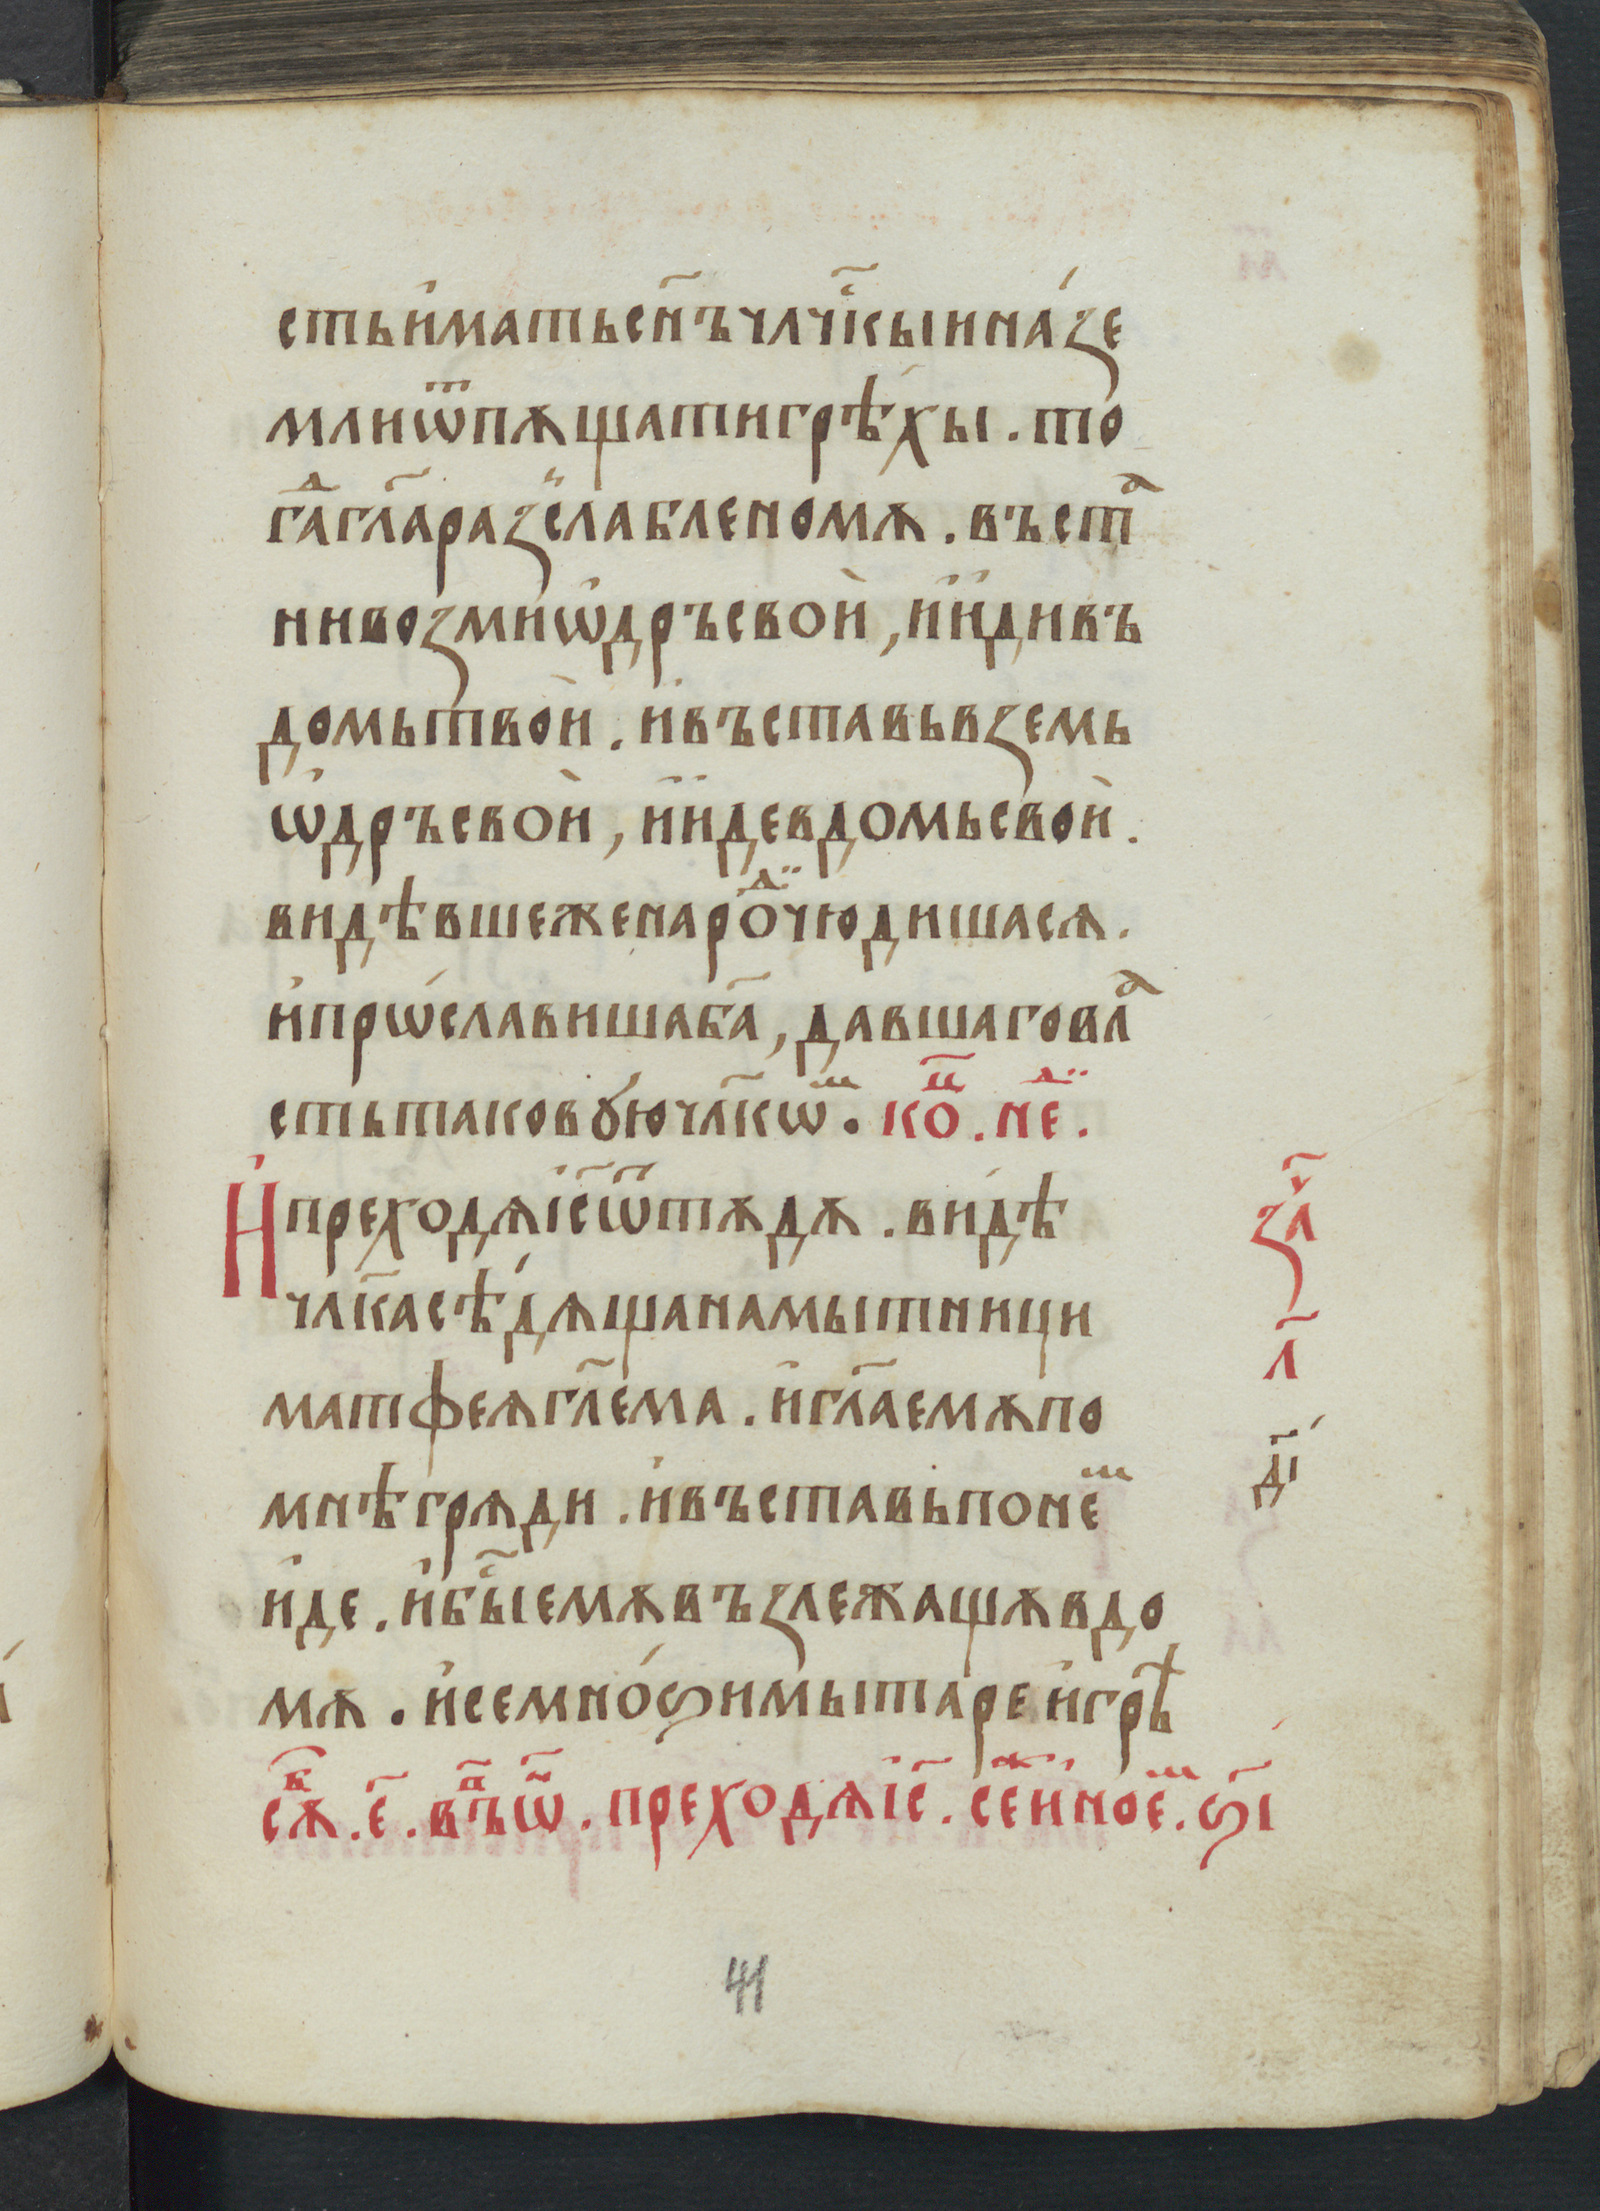 стьи҆матьсн҃ъчлч҇кыина́зе
млиѿпꙋщатигрѣ́хы. то
гⷣагл҃аразс̾лабленомꙋ. въстⷶ
нивозмиѡ҆дръсвоѝ, и҆и҆дивъ
домьтвои. и҆въставьвземь
ѡ҆дръсвоѝ, и҆и҆девдомьсвоѝ.
видѣвшеженароⷣчюдишася.
и҆прѡ́славишаба҃, давшаговлⷶ
стьтаковꙋ́ючл҃кѡⷨ. кⷪ҇ц. неⷣ.
И҆преходяі҆с҃ѿтꙋдꙋ. ви́дѣ
чл҃касѣдя́щанамытници
матфеягл҃ема. и҆гл҃аемꙋпо
мнѣгряди. и҆въставьпонеⷨ
и҆де. и҆бы҇емꙋвъзлежащꙋвдо
мꙋ. и҆семно́ѕимытарєи҆грѣ
сꙋⷡ. е҃. вⷫъѿ. преходяі҆с҃. сеⷤи҆ноеⷨ. ѕ҃і
заⷱ҇
л҃
д҃і
41